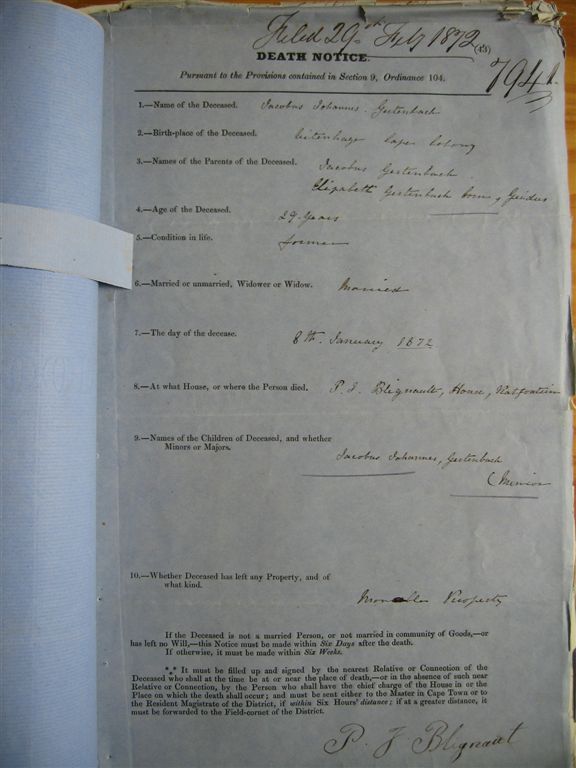 Filed 29th Feby 1872
(43)
DEATH NOTICE.
7941.
Pursuant to the Provisions contained in Section 9, Ordinance 104.
1.—Name of the Deceased. Jacobus Johannes Gertenbach
2.—Birth-place of the Deceased. Uitenhage Cape Colony
3.—Names of the Parents of the Deceased. Jacobus Gertenbach
Elizabeth Gertenbach born
4.—Age of the Deceased. 29 Years
5.—Condition in life. farmer
6.—Married or unmarried, Widower or Widow. Married
7.—The day of the decease. 8th January 1872
8.—At what House, or where the Person died. P. J. Blignault, House,
9.—Names of the Children of Deceased, and whether
Minors or Majors. Jacobus Johannes, Gertenbach
(Minor
10.—Whether Deceased has left any Property, and of
what kind. Property
If the Deceased is not a married Person, or not married in community of Goods,—or
has left no Will,—this Notice must be made within Six Days after the death.
If otherwise, it must be made within Six Weeks.
*** It must be filled up and signed by the nearest Relative or Connection of the
Deceased who shall at the time be at or near the place of death,—or in the absence of such near
Relative or Connection, by the Person who shall have the chief charge of the House in or the
Place on which the death shall occur; and must be sent either to the Master in Cape Town or to
the Resident Magistrate of the District, if within Six Hours' distance; if at a greater distance, it
must be forwarded to the Field-cornet of the District.
P. J Blignaut